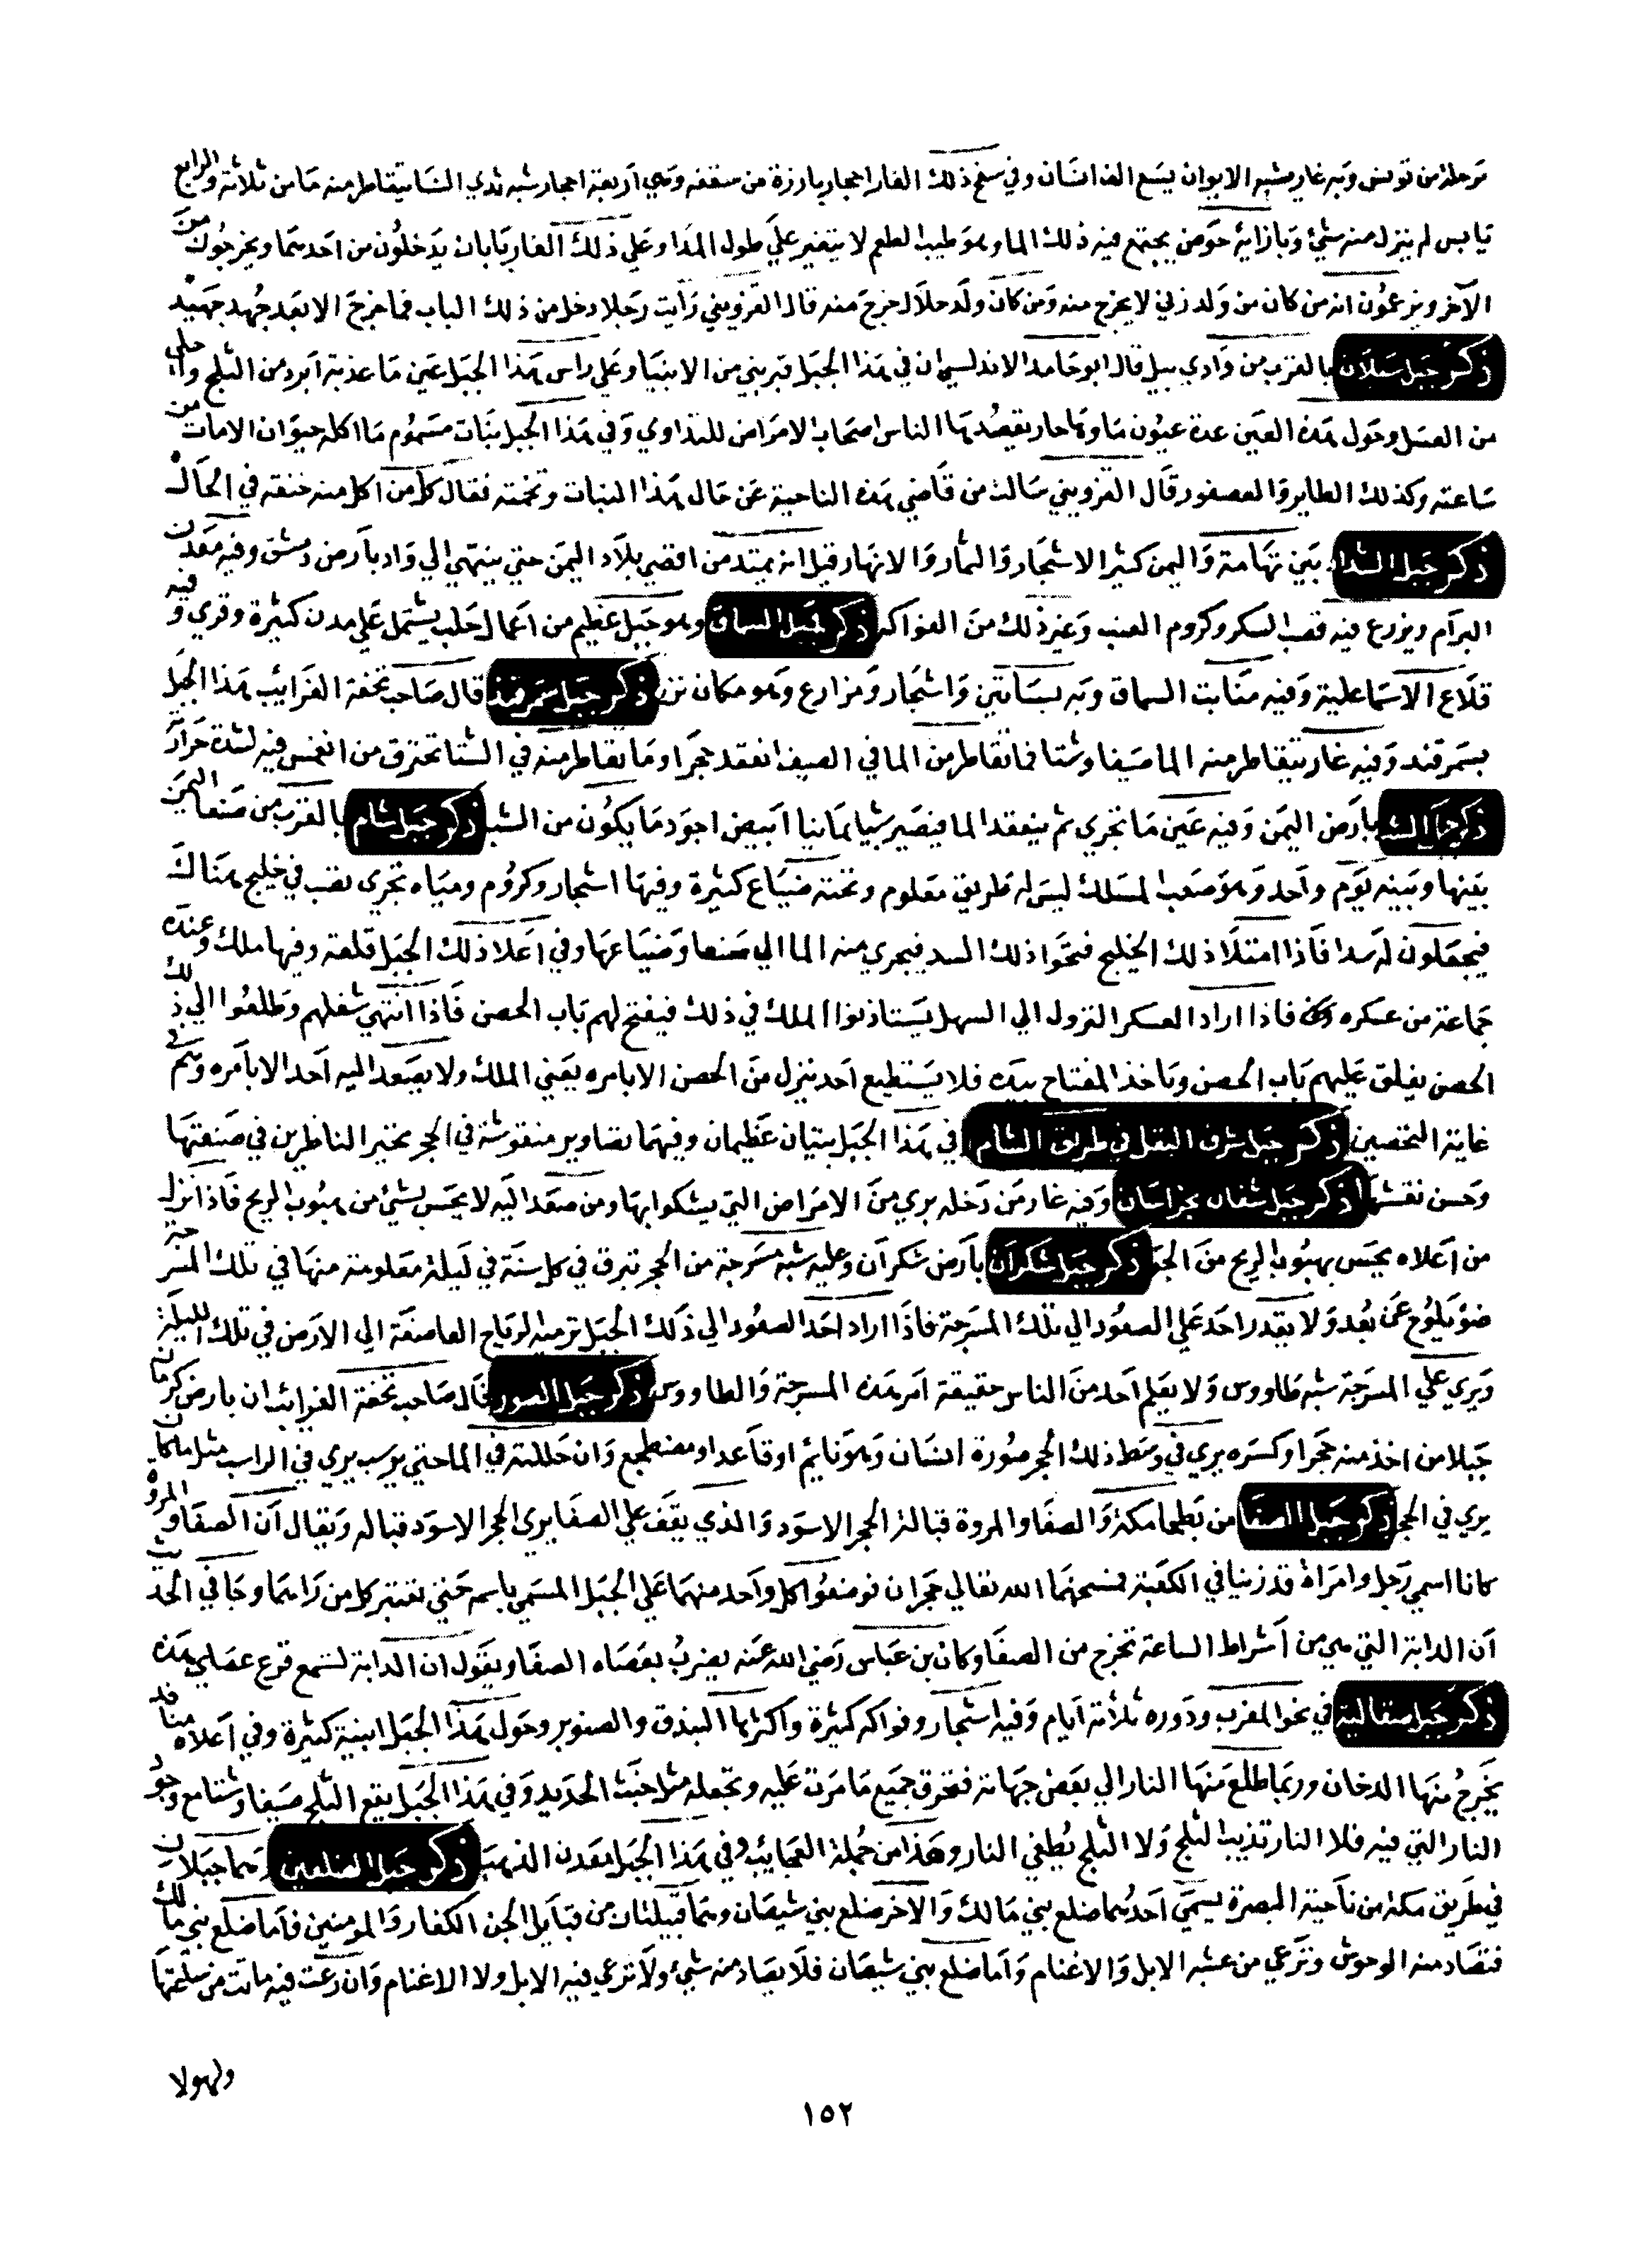 مرحلة من تونس وبه غار يشبه الايوان يسع الف انسان وفي سقف ذلك الغار احجار بارزة من سقفه وهي اربعة احجار شبه ثدي النسا يتقاطر منه ما من ثلاثة والرابع
يابس لم ينزل منه شئ وبازائه حوض يجتمع فيه ذلك الما وهو طيب الطعم لا يتغير علي طول المدا وعلي ذلك الغار بابان يدخلون من احدهما ويخرجون من
الآخر ويزعمون انه من كان من ولد زني لا يخرج منه ومن كان ولد حلال خرج منه قال القزويني رايت رجلا دخل من ذلك الباب فما خرج الا بعد جهد جهيد
ذكر جبل سبلان بالقرب من وادي بيل قال ابو حامد الاندلسي ان في هذا الجبل قبر نبي من الانبيا وعلي راس هذا الجبل عين ما عذبة ابرد من الثلج واحلي
من العسل وحول هذه العين عدة عيون ماوها حار يقصدها الناس اصحاب الامراض للتداوي وفي هذا الجبل نبات مسموم ما اكله حيوان الا مات من
ساعته وكذلك الطاير والعصفور قال القزويني سالت من قاضي هذه الناحية عن حال هذا النبات وتحته فقال كل من اكل منه خنقه في الحال
ذكر جبل السراة بين تهامة واليمن كثير الاشجار والثمار والانهار قيل انه يمتد من اقصي بلاد اليمن حتي ينتهي الي واد بارض دمشق وفيه معدن
البرام ويزرع فيه قصب السكر وكروم العنب وغير ذلك من الفواكه ذكر جبل السماق وهو جبل عظيم من اعمال حلب يشتمل علي مدن كثيرة وقري و فيه
قلاع الاسماعلية وفيه منابت السماق وبه بساتين واشجار ومزارع وهو مكان نزه ذكر جبل سمرقند قال صاحب تحفة الغرايب هذا الجبل
بسمرقند وفيه غار يتقاطر منه الما صيفا وشتا فما تقاطر من الما في الصيف انعقد حجرا وما تقاطر منه في الشتا تحترق من انغمس فيه لشدة حرارته
ذكر جبال الشب بارض اليمن وفيه عين ما تجري ثم ينعقد الما فيصير شبا يمانيا ابيض اجود ما يكون من الشب ذكر جبل شبام بالقرب من صنعا اليمن
بينها وبينه يوم واحد وهو صعب المسلك ليس له طريق معلوم وتحته ضياع كثيرة وفيها اشجار وكروم ومياه تجري تصب في خليج هناك
فيجعلون له سدا فاذا امتلا ذلك الخليج فتحوا ذلك السد فيجري منه الما الي صنعا وضياعها وفي اعلا ذلك الجبل قلعة وفيها ملك وعنده
جماعة من عسكره فاذا اراد العسكر النزول الي السهل يستاذنوا الملك في ذلك فيفتح لهم باب الحصن فاذا انتهي شغلهم وطلعوا الي ذلك
الحصن يغلق عليهم باب الحصن وياخذ المفتاح بيده فلا يستطيع احد ينزل من الحصن الا بامره يعني الملك ولا يصعد اليه احد الا بامره وهم في
غاية التحصين ذكر جبل شرف البغل في طريق الشام في هذا الجبل بيتان عظيمان وفيهما تصاوير منقوشة في الحجر تحير الناظرين في صنعتها
وحسن نقشها ذكر جبل شقان بخراسان وفيه غار من دخله بري من الامراض التي يشكوا بها ومن صعد اليه لا يحس بشئ من هبوب الريح فاذا نزل
من اعلاه يحس بهبوب الريح من الجبل ذكر جبل شكران بارض شكران وعليه شبه مسرجة من الحجر تبرق في كل سنة في ليلة معلومة منها في تلك المسرجة
ضو يلوح عن بعد ولا يقدر احد علي الصعود الي تلك المسرجة فاذا اراد احد الصعود الي ذلك الجبل ترميه الرياح العاصفة الي الارض في تلك الليلة
ويري علي المسرجة شبه طاووس ولا يعلم احد من الناس حقيقة امر هذه المسرجة والطاووس ذكر جبل الصور قال صاحب تحفة الغرائب ان بارض كرمان
جبلا من اخذ منه حجرا وكسره يري في وسط ذلك الحجر صورة انسان وهو نايم او قاعد او مضطجع وان حللته في الما حتي يرسب يري في الراسب مثل ما كان
يري في الحجر ذكر جبل الصفا من بطحا مكة والصفا والمروة قبالة الحجر الاسود والذي يقف علي الصفا يري الحجر الاسود قباله ويقال ان الصفا والمروة
كانا اسمي رجل وامراة قد زنيا في الكعبة فمسخهما الله تعالي حجران فوضعوا كل واحد منهما علي الجبل المسمي باسمه حتي تعتبر كل من راهما وجا في الحديث
ان الدابة التي هي من اشراط الساعة تخرج من الصفا وكان بن عباس رضي الله عنه يضرب بعصاه الصفا ويقول ان الدابة لتسمع قرع عصاي هذه
ذكر جبل صقالية في نحو المغرب ودوره ثلاثة ايام وفيه اشجار وفواكه كثيرة واكثرها البندق والصنوبر وحول هذا الجبل ابنية كثيرة وفي اعلاه منافذ
يخرج منها الدخان وربما طلع منها النار الي بعض جهاته فتحرق جميع ما مرت عليه وتجعله مثل خبث الحديد وفي هذا الجبل يقع الثلج صيفا وشتا مع وجود
النار التي فيه فلا النار تذيب الثلج ولا الثلج يطفي النار وهذا من جملة العجايب وفي هذا الجبل معدن الذهب ذكر جبل الضلعين وهما جبلان
في طريق مكة من ناحية البصرة يسمي احدهما ضلع بني مالك والاخر ضلع بني شيصان وهما قبيلتان من قبايل الجن الكفار والمومنين فاما ضلع بني مالك
فتصاد منه الوحوش وترعي من عشبه الابل والاغنام واما ضلع بني شيصان فلا يصاد منه شئ ولا ترعي فيه الابل ولا الاغنام وان رعت فيه ماتت من ساعتها
ولهولا
١٥٢